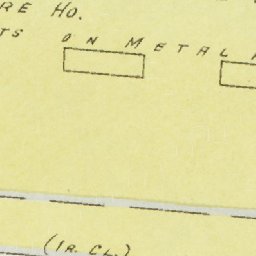 RE HO.
TS ON METAL
(IR. CL.)